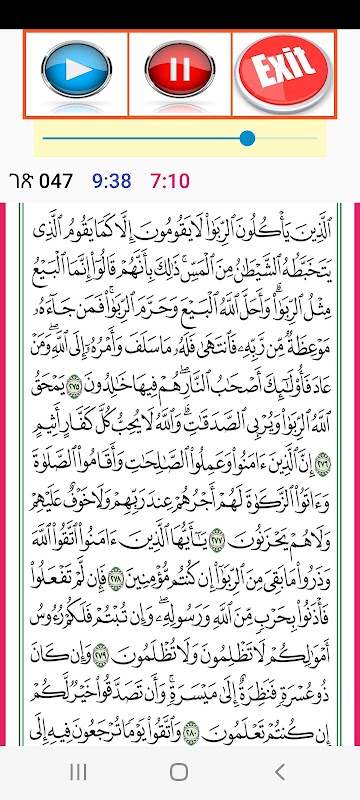 Exit
ገጽ 047 9:38 7:10
ٱلَّذِينَ يَأْكُلُونَ ٱلرِّبَوٰا۟ لَا يَقُومُونَ إِلَّا كَمَا يَقُومُ ٱلَّذِى
يَتَخَبَّطُهُ ٱلشَّيْطَٰنُ مِنَ ٱلْمَسِّ ۚ ذَٰلِكَ بِأَنَّهُمْ قَالُوٓا۟ إِنَّمَا ٱلْبَيْعُ
مِثْلُ ٱلرِّبَوٰا۟ ۗ وَأَحَلَّ ٱللَّهُ ٱلْبَيْعَ وَحَرَّمَ ٱلرِّبَوٰا۟ ۚ فَمَن جَآءَهُۥ
مَوْعِظَةٌ مِّن رَّبِّهِۦ فَٱنتَهَىٰ فَلَهُۥ مَا سَلَفَ وَأَمْرُهُۥٓ إِلَى ٱللَّهِ ۖ وَمَنْ
عَادَ فَأُو۟لَٰٓئِكَ أَصْحَٰبُ ٱلنَّارِ ۖ هُمْ فِيهَا خَٰلِدُونَ ٢٧٥ يَمْحَقُ
ٱللَّهُ ٱلرِّبَوٰا۟ وَيُرْبِى ٱلصَّدَقَٰتِ ۗ وَٱللَّهُ لَا يُحِبُّ كُلَّ كَفَّارٍ أَثِيمٍ
٢٧٦ إِنَّ ٱلَّذِينَ ءَامَنُوا۟ وَعَمِلُوا۟ ٱلصَّٰلِحَٰتِ وَأَقَامُوا۟ ٱلصَّلَوٰةَ
وَءَاتَوُا۟ ٱلزَّكَوٰةَ لَهُمْ أَجْرُهُمْ عِندَ رَبِّهِمْ وَلَا خَوْفٌ عَلَيْهِمْ
وَلَا هُمْ يَحْزَنُونَ ٢٧٧ يَٰٓأَيُّهَا ٱلَّذِينَ ءَامَنُوا۟ ٱتَّقُوا۟ ٱللَّهَ
وَذَرُوا۟ مَا بَقِىَ مِنَ ٱلرِّبَوٰٓا۟ إِن كُنتُم مُّؤْمِنِينَ ٢٧٨ فَإِن لَّمْ تَفْعَلُوا۟
فَأْذَنُوا۟ بِحَرْبٍ مِّنَ ٱللَّهِ وَرَسُولِهِۦ ۖ وَإِن تُبْتُمْ فَلَكُمْ رُءُوسُ
أَمْوَٰلِكُمْ لَا تَظْلِمُونَ وَلَا تُظْلَمُونَ ٢٧٩ وَإِن كَانَ
ذُو عُسْرَةٍ فَنَظِرَةٌ إِلَىٰ مَيْسَرَةٍ ۚ وَأَن تَصَدَّقُوا۟ خَيْرٌ لَّكُمْ
إِن كُنتُمْ تَعْلَمُونَ ٢٨٠ وَٱتَّقُوا۟ يَوْمًا تُرْجَعُونَ فِيهِ إِلَى